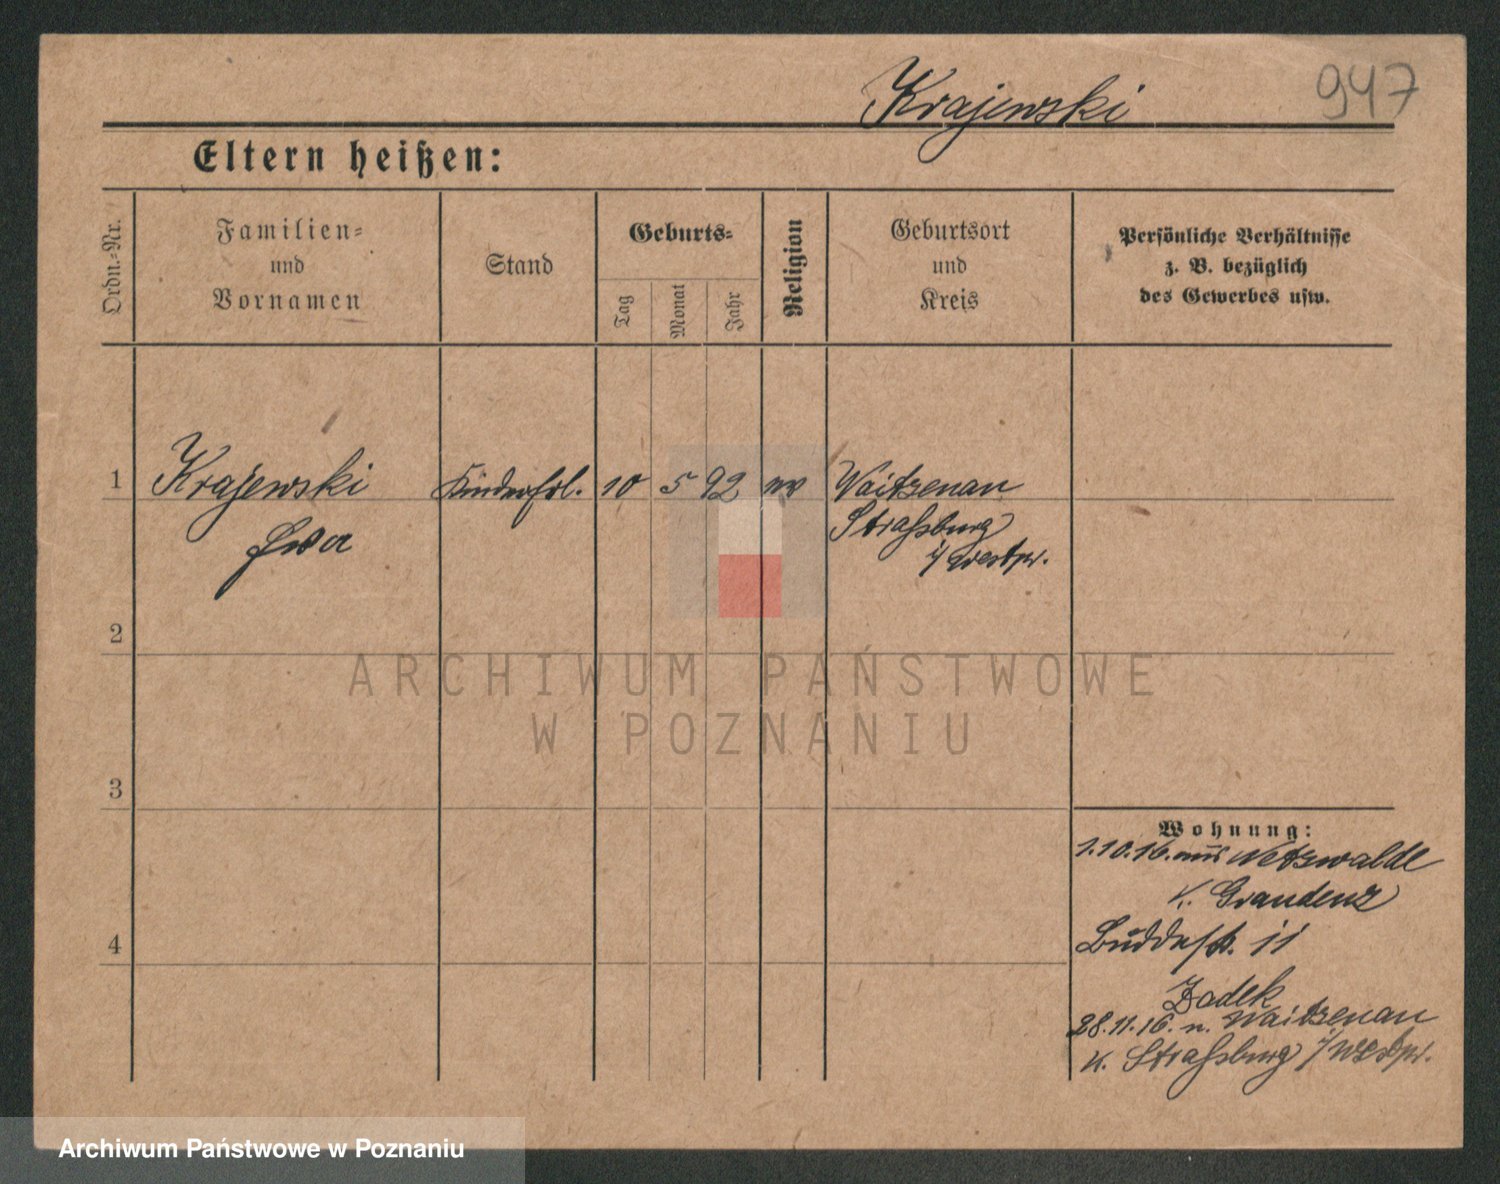 Krajewski
947
Eltern heißen:
Ordn.-Nr.
Familien-
und
Vornamen
Stand
Geburts-
Tag
Monat
Jahr
Religion
Geburtsort
und
Kreis
Persönliche Verhältnisse
z. B. bezüglich
des Gewerbes usw.
1
Krajewski
Kinderfrl.
10
5
92
Waitzenau
Ewa
Straßburg
i/ Westpr.
2
ARCHIWUM PAŃSTWOWE
W POZNANIU
3
Wohnung:
1.10.16. aus Netzwalde
K. Graudenz
4
Buddestr. 11
Zadek
28.11.16. n. Waitzenau
K. Straßburg i/ Westpr.
Archiwum Państwowe w Poznaniu